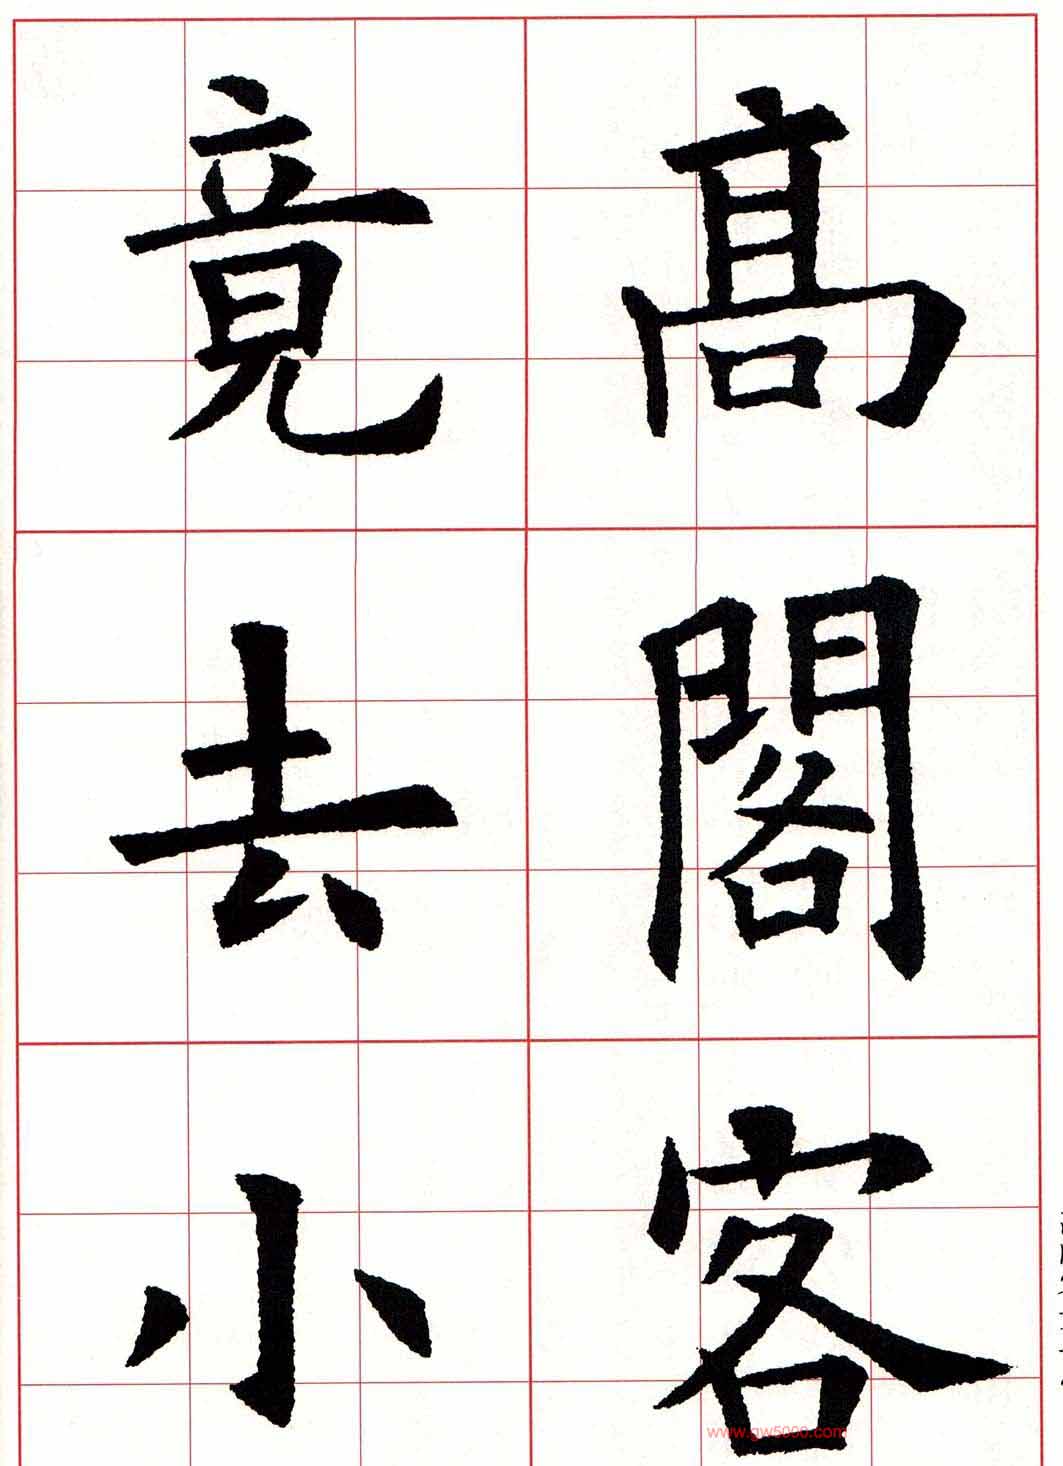 髙閣客
竟去小
www.gw5000.com